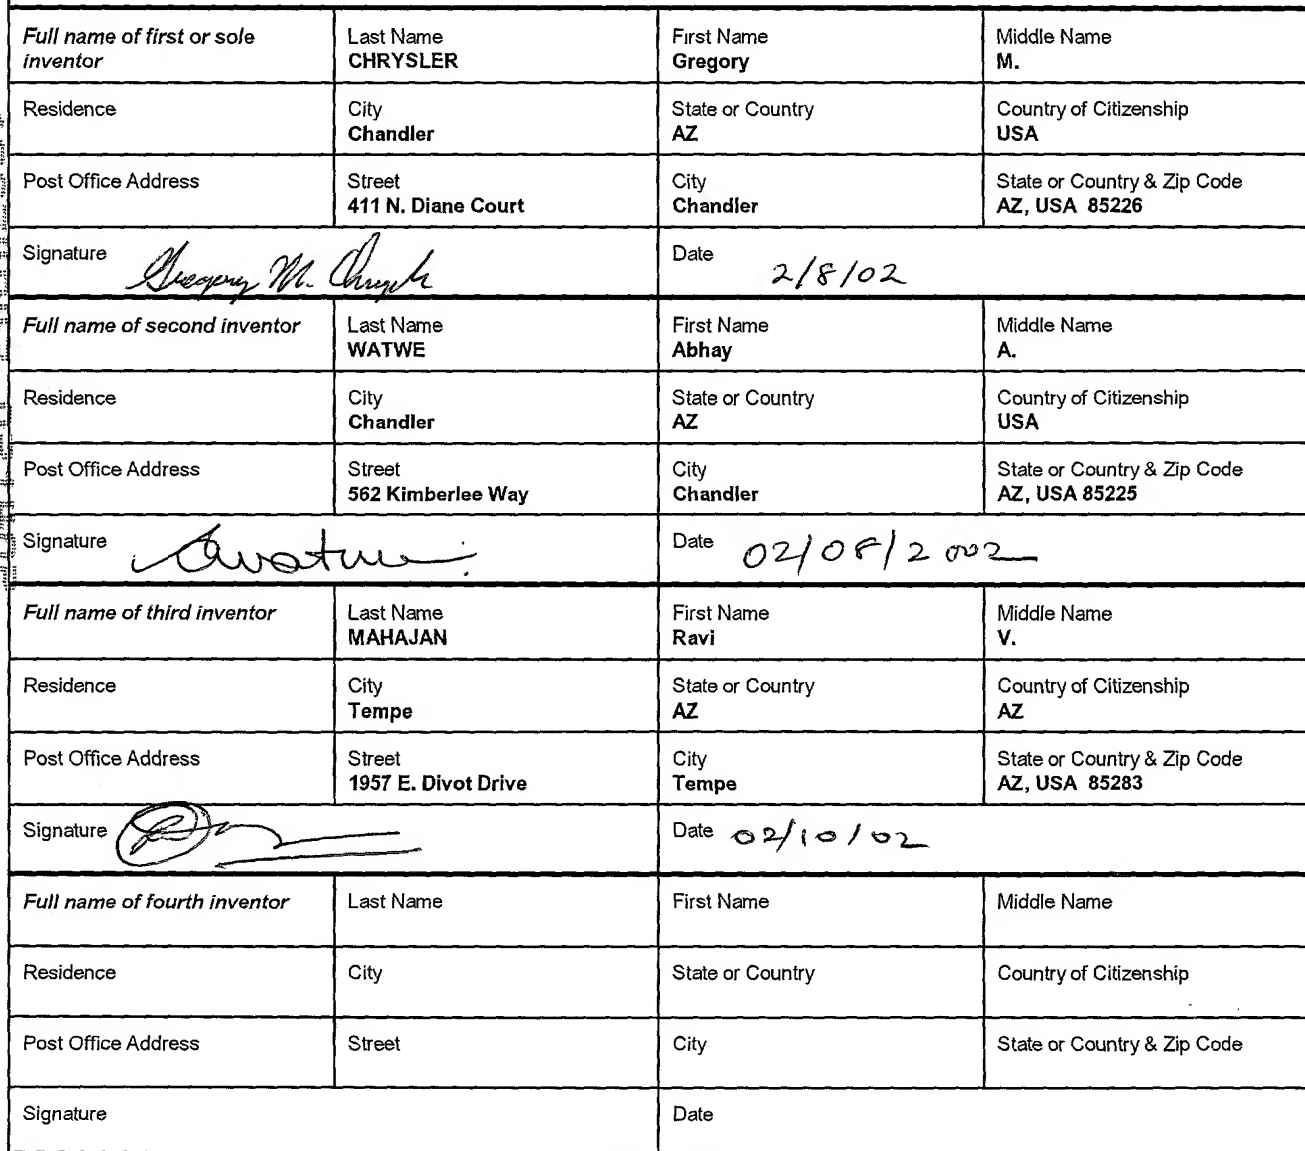 Full name of first or sole inventor
Last Name
CHRYSLER
First Name
Gregory
Middle Name
M.
Residence
City
Chandler
State or Country
AZ
Country of Citizenship
USA
Post Office Address
Street
411 N. Diane Court
City
Chandler
State or Country & Zip Code
AZ, USA 85226
Signature
Gregory M. Chrysler
Date
2/8/02
Full name of second inventor
Last Name
WATWE
First Name
Abhay
Middle Name
A.
Residence
City
Chandler
State or Country
AZ
Country of Citizenship
USA
Post Office Address
Street
562 Kimberlee Way
City
Chandler
State or Country & Zip Code
AZ, USA 85225
Signature
Date
02/08/2002
Full name of third inventor
Last Name
MAHAJAN
First Name
Ravi
Middle Name
V.
Residence
City
Tempe
State or Country
AZ
Country of Citizenship
AZ
Post Office Address
Street
1957 E. Divot Drive
City
Tempe
State or Country & Zip Code
AZ, USA 85283
Signature
Date
02/10/02
Full name of fourth inventor
Last Name
First Name
Middle Name
Residence
City
State or Country
Country of Citizenship
Post Office Address
Street
City
State or Country & Zip Code
Signature
Date